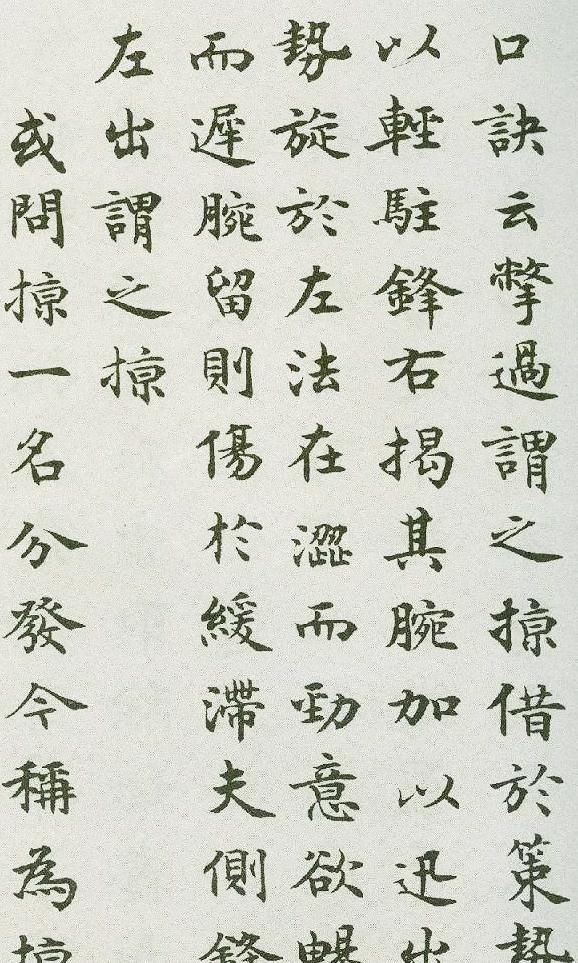 口訣云擎過謂之掠借於策勢
以輕駐鋒右揭其腕加以迅出
勢旋於左法在澀而勁意欲暢
而遲腕留則傷於緩滯夫側鋒
左出謂之掠
或問掠一名分發今稱為掠